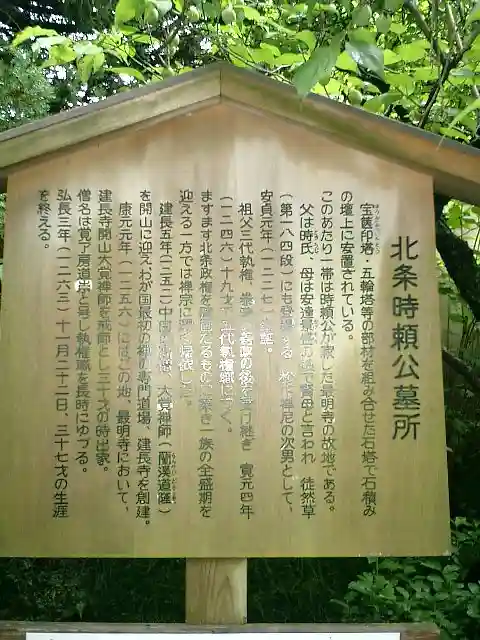 北条時頼公墓所
宝篋印塔・五輪塔等の部材を組み合せた石塔で石積み
の壇上に安置されている。
このあたり一帯は時頼公が寂した最明寺の故地である。
父は時氏、母は安達景盛の娘で賢母と言われ 徒然草
(第一八四段)にも登場する 松下禅尼の次男として、
安貞元年(一二二七)
祖父三代執権 泰時の善政の後を受け継ぎ 寛元四年
(一二四六)十九才で五代執権職に つく。
ますます北条政権を隆固たるものに築き一族の全盛期を
迎える一方では禅宗に
建長五年(一二五三)中国の 大覚禅師(蘭渓道隆)
を開山に迎えわが国最初の禅の専門道場、建長寺を創建。
康元元年(一二五六)にはこの地、最明寺において、
建長寺開山大覚禅師を戒師とし三十才の時出家。
僧名は覚了房道崇と号し執権職を長時にゆづる。
弘長三年(一二六三)十一月二十二日、三十七才の生涯
を終える。